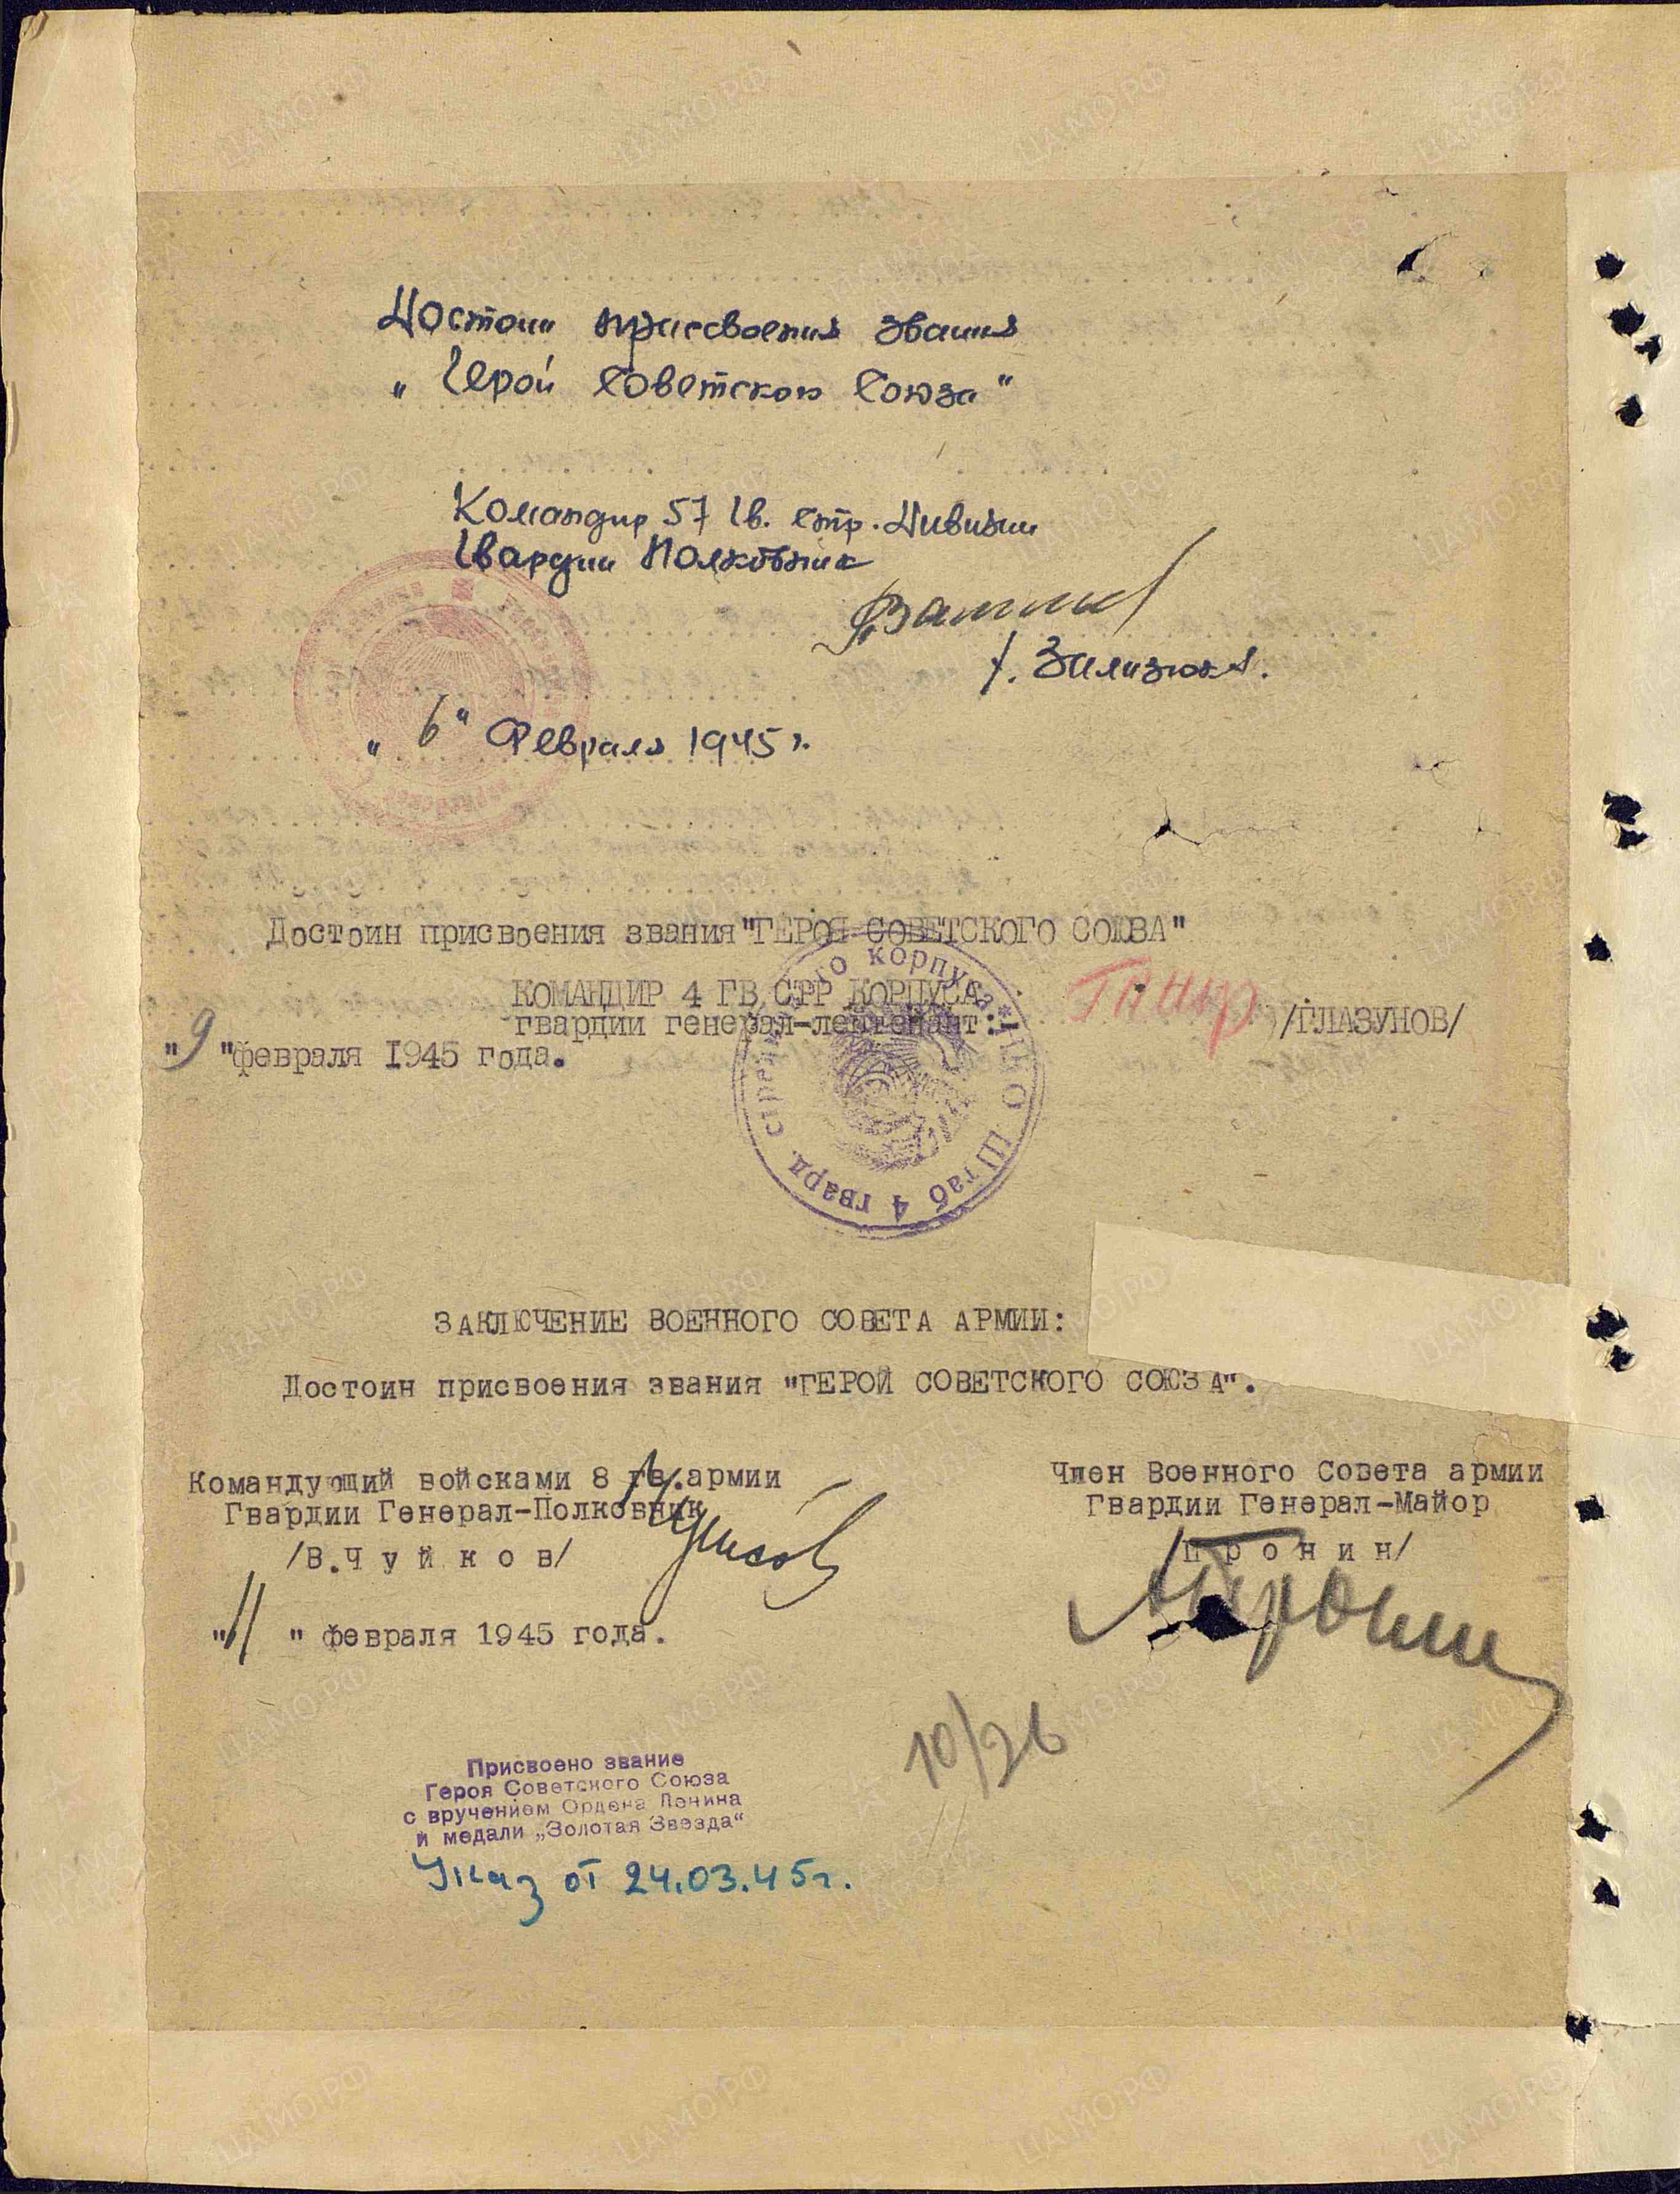 Достоин присвоения звания
„ Герой Советского Союза "
Командир 57 Гв. Стр. Дивизии
Гвардии Полковник
/. Зализюк /.
„ 6 " Февраля 1945 г.
Достоин присвоения звания "ГЕРОЯ СОВЕТСКОГО СОЮЗА"
КОМАНДИР 4 ГВ СТР КОРПУСА
гвардии генерал-лейтенант: /ГЛАЗУНОВ/
"9 "февраля 1945 года.
НКО Штаб 4 гвард. стрелкового корпуса *
ЗАКЛЮЧЕНИЕ ВОЕННОГО СОВЕТА АРМИИ:
Достоин присвоения звания "ГЕРОЙ СОВЕТСКОГО СОЮЗА".
Командующий войсками 8 гв.армии
Гвардии Генерал-Полковник
/В.Чуйков/
"11 " февраля 1945 года.
Член Военного Совета армии
Гвардии Генерал-Майор
/Пронин/
Пронин
10/26
Присвоено звание
Героя Советского Союза
с вручением Ордена Ленина
и медали „Золотая Звезда“
Указ от 24.03.45г.
ЦАМО.РФ